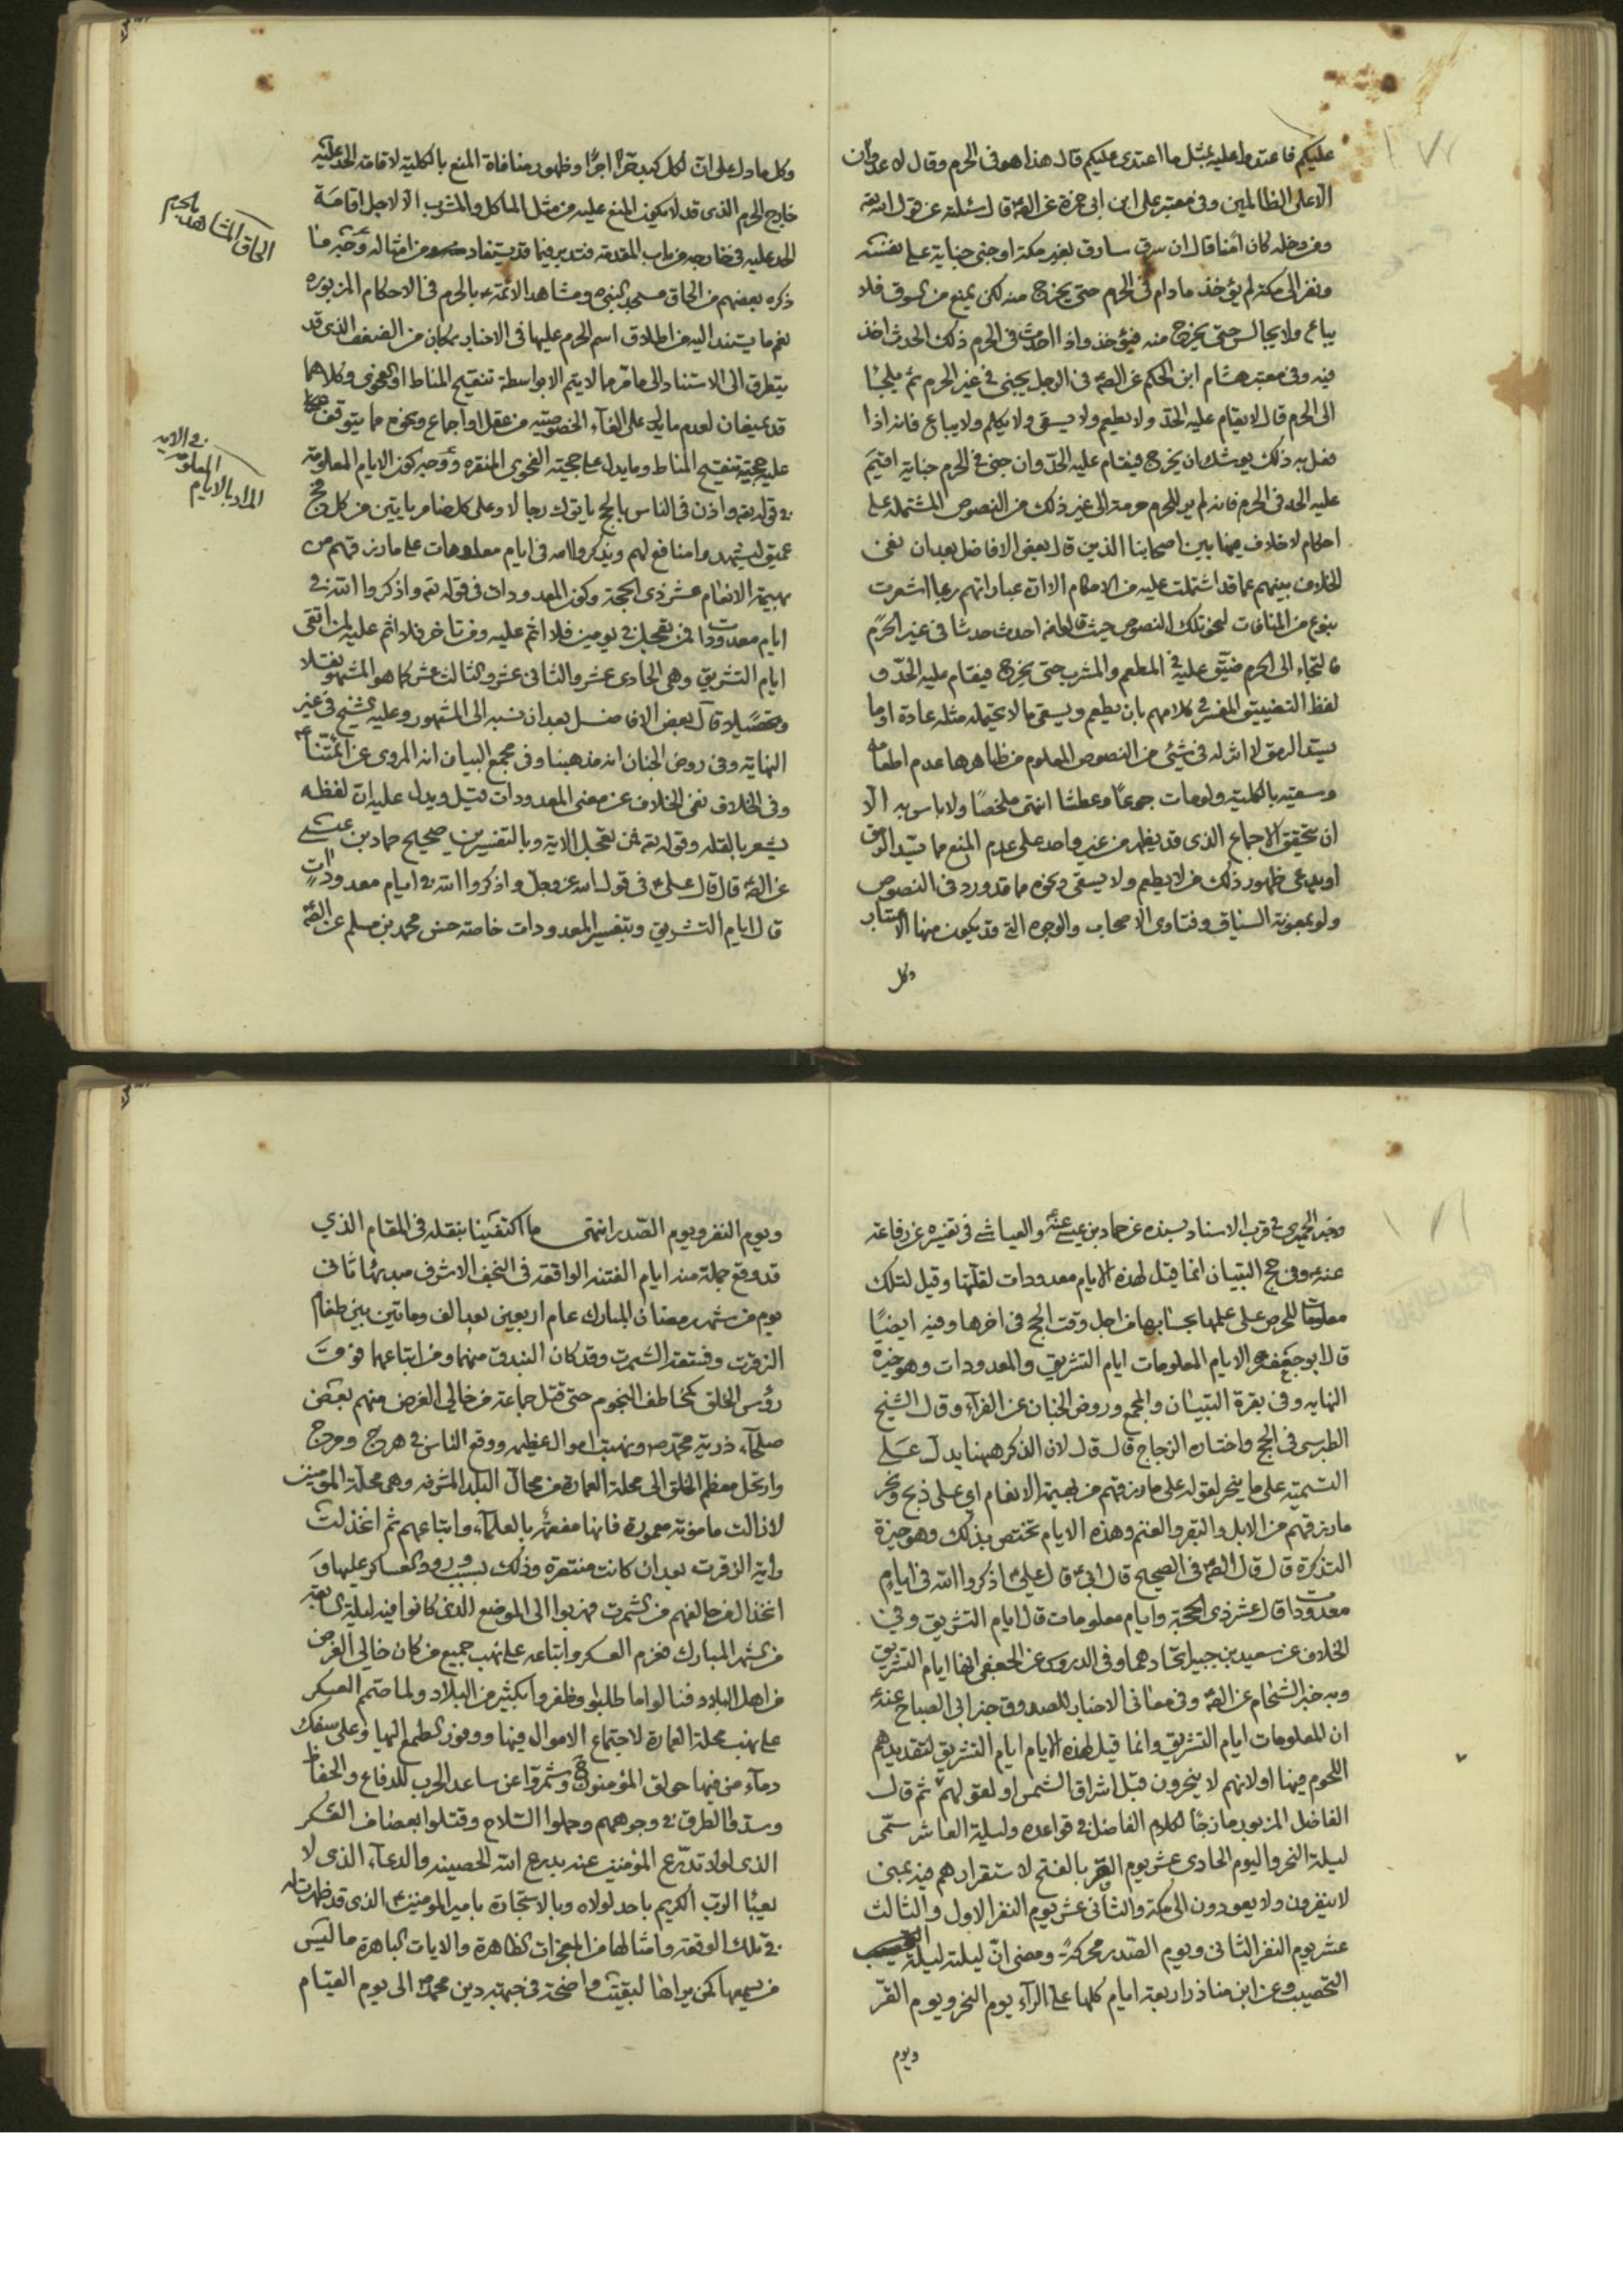 عليكم فاعتدوا عليه بمثل ما اعتدى عليكم قال هذا هو فى الحرم وقال لا عدوان
الا على الظالمين وفى معتبر على ابن ابى حمزة عن الصّ قال سئلته عن قول الله تعه
ومن دخله كان امنا قال ان سرق سارق بغير مكة او جنى جناية على نفسه
ففر الى مكة لم يؤخذ ما دام فى الحرم حتى يخرج منه لكن يمنع من السوق فلا
يباع ولا يجالس حتى يخرج منه فيؤخذ واذا احدث فى الحرم ذلك الحدث اخذ
فيه وفى معتبر هشام ابن الحكم عن الصّ فى الرجل يجنى فى غير الحرم ثم يلجأ
الى الحرم قال لا يقام عليه الحدّ ولا يطعم ولا يسقى ولا يكلم ولا يباع فانه اذا
فعل به ذلك يوشك ان يخرج فيقام عليه الحدّ وان جنى فى الحرم جناية اقيم
عليه الحد فى الحرم فانه لم ير للحرم حرمة الى غير ذلك من النصوص المشتملة على
احكام لا خلاف فيها بين اصحابنا الذين قال بعض الافاضل بعد ان نفى
الخلاف بينهم عما قد اشتملت عليه من الاحكام الا ان عباراتهم ربما اشعرت
بنوع من المنافات لنحو تلك النصوص حيث قالوا من احدث حدثا فى غير الحرم
فالتجاء الى الحرم ضيّق عليه فى المطعم والمشرب حتى يخرج فيقام عليه الحدّ و
لفظ التضييق المفسر فى كلامهم بان يطعم ويسقى ما لا يحتمله مثله عادة او ما
يسد الرمق لا اثر له فى شئ من النصوص المعلوم من ظاهرها عدم اطعامه
وسقيه بالكلية ولو مات جوعًا وعطشا انتهى ملخصًا ولا باس به الا
ان يتحقق الاجماع الذى قد يظهر من غير واحد على عدم المنع مما يسد الرمق
او يدعى ظهور ذلك من لا يطعم ولا يسقى ونحوه مما قد ورد فى النصوص
ولو بمعونة السياق وفتاوى الاصحاب والوجوه التى قد يكون منها الاعتبار
وكل
وكل ما دل على ان لكل كبد حرّا اجرًا وظهور منافاة المنع بالكلية لاقامة الحد عليه
خارج الحرم الذى قد لا يكون المنع عليه من مثل الماكل والمشرب الا لاجل اقامة
الحد عليه فى خارجه من باب المقدمة فتدبر فيما قد يستفاد من امثاله وخبر ما
ذكره بعضهم من الحاق مسجد النبى ص ومشاهد الائمة ع بالحرم فى الاحكام المزبوره
نعم ما يستند اليه من اطلاق اسم الحرم عليها فى الاخبار بمكان من الضعف الذى قد
يتطرق الى الاستناد الى ما مرّ مما لا يتم الا بواسطة تنقيح المناط او الفحوى وكلاهما
قد يمنعان لعدم ما يدل على الغاء الخصوصية من عقل او اجماع ونحوه مما يتوقف
عليه حجية تنقيح المناط وما يدل على حجية الفحوى المنفرده ووجه كون الايام المعلومة
فى قوله تعه واذن فى الناس بالحج ياتوك رجالا وعلى كل ضامر ياتين من كل فج
عميق ليشهدوا منافع لهم ويذكروا الله فى ايام معلومات على ما رزقهم من
بهيمة الانعام عشر ذى الحجة وكون المعدودات فى قوله تعه واذكروا الله فى
ايام معدودات فمن تعجل فى يومين فلا اثم عليه ومن تاخر فلا اثم عليه لمن اتقى
ايام التشريق وهى الحادى عشر والثانى عشر والثالث عشر كما هو المشهور نقلا
وتحصيلا وقال بعض الافاضل بعد ان نسبه الى المشهور وعليه الشيخ فى غير
النهاية وفى روض الجنان انه مذهبنا وفى مجمع البيان انه المروى عن ائمتنا ع
وفى الخلاف نفى الخلاف عن معنى المعدودات قيل ويدل عليه ان لفظه
يشعر بالقله وقوله تعه فمن تعجل الاية وبالتفسيرين صحيح حماد بن عيسى
عن الصّ قال قال على ع فى قول الله عز وجل واذكروا الله فى ايام معدودات
قال ايام التشريق وبتفسير المعدودات خاصة حسن محمد بن مسلم عن الصّ
الحاق المشاهد بالحرم
المراد بالايام
المعلومة
فى الاية
وخبر الحميرى فى قرب الاسناد بسنده عن حماد بن عيسى عنه ع والعياشى فى تفسيره عن رفاعة
عنه ع وفى حج التبيان انما قيل لهذه الايام معدودات لقلتها وقيل لتلك
معلومات للحرص على علمها بحسابها من اجل وقت الحج فى اخرها وفيه ايضًا
قال ابو جعفر ع الايام المعلومات ايام التشريق والمعدودات وهو خيرة
النهايه وفى بقرة التبيان والمجمع وروض الجنان عن الفرآء وقال الشيخ
الطبرسى فى الحج واختاره الزجاج قال قال لان الذكر ههنا يدل على
التسمية على ما ينحر لقوله على ما رزقهم من بهيمة الانعام اى على ذبح ونحر
ما رزقهم من الابل والبقر والغنم وهذه الايام تختص بذلك وهو خيرة
التذكرة قال قال الصّ فى الصحيح قال ابى ع قال على ع اذكروا الله فى ايام
معدودات قال عشر ذى الحجة وايام معلومات قال ايام التشريق وفى
الخلاف عن سعيد بن جبير اتحادهما وفى الدروس عن الجعفى انها ايام التشريق
وبه خبر الشحام عن الصّ وفى معانى الاخبار للصدوق خبر ابى الصباح عنه ع
ان المعلومات ايام التشريق وانما قيل لهذه الايام ايام التشريق لتقديدهم
اللحوم فيها او لانهم لا ينحرون قبل اشراق الشمس او لقولهم ثم قال
الفاضل المزبور مازجًا لكلام الفاضل فى قواعده وليلة العاشر سمّى
ليلة النحر واليوم الحادى عشر يوم القر بالفتح لاستقرارهم فيه بمنى
لا ينفرون ولا يعودون الى مكة والثانى عشر يوم النفر الاول والثالث
عشر يوم النفر الثانى ويوم الصّدر محركةً ومضى انّ ليلته ليلة
التحصيب وعن ابن مناذر اربعة ايام كلها على الرآء يوم النحر ويوم القرّ
ويوم
ويوم النفر ويوم الصّدر انتهى ما اكتفينا بنقله فى المقام الذي
قد وقع جملة منه ايام الفتنة الواقعة فى النجف الاشرف مبدئها ثانى
يوم من شهر رمضان المبارك عام اربعين بعد الف وماتين بين طغام
الزقرت وفسقة الشمرت وقد كان البندق منهما ومن اتباعهما فوق
رؤس الخلق كخاطف النجوم حتى قتل جماعة من خالي الغرض منهم بعض
صلحآء ذرية محمد ص ونهبت اموال عظيمه ووقع الناس فى هرج ومرج
وارتحل معظم الخلق الى محلة العمارة من محال البلد المشرفه وهى محلّة المؤمنين
لا زالت مامونة معمورة فانها مفعمة بالعلمآء واتباعهم ثم اخذلت
راية الزقرت بعد ان كانت منتصرة وذلك بسبب ورود العساكر عليها و
اتخذال من حالفهم من الشمرت فهربوا الى الموضع الذى كانوا فيه ليلة
من الشهر المبارك فعزم العسكر واتباعه على نهب جميع من كان خالي الغرض
من اهل البلاد فنالوا ما طلبوا وظفروا بكثير من البلاد ولما صمّم العسكر
على نهب محلة العمارة لاجتماع الاموال فيها ووفور الطمع اليها وعلى سفك
دمآء من فيها حولق المؤمنون وشمروا عن ساعد الحرب للدفاع والحفاظ
وسدوا الطرق فى وجوههم وحملوا السّلاح وقتلوا بعضا من العسكر
الذى لولا تدرّع المؤمنين عنه بدرع الله الحصينه والدعآء الذى لا
يعبأ الربّ الكريم باحد لولاه وبالاستجارة بامير المؤمنين ع الذى قد ظهرت له
فى تلك الوقعة وامثالها من المعجزات الظاهرة والايات الباهرة ما ليس
من يسمعها كمن يراها لبقيت واضحة فى جبهة دين محمد ص الى يوم القيام